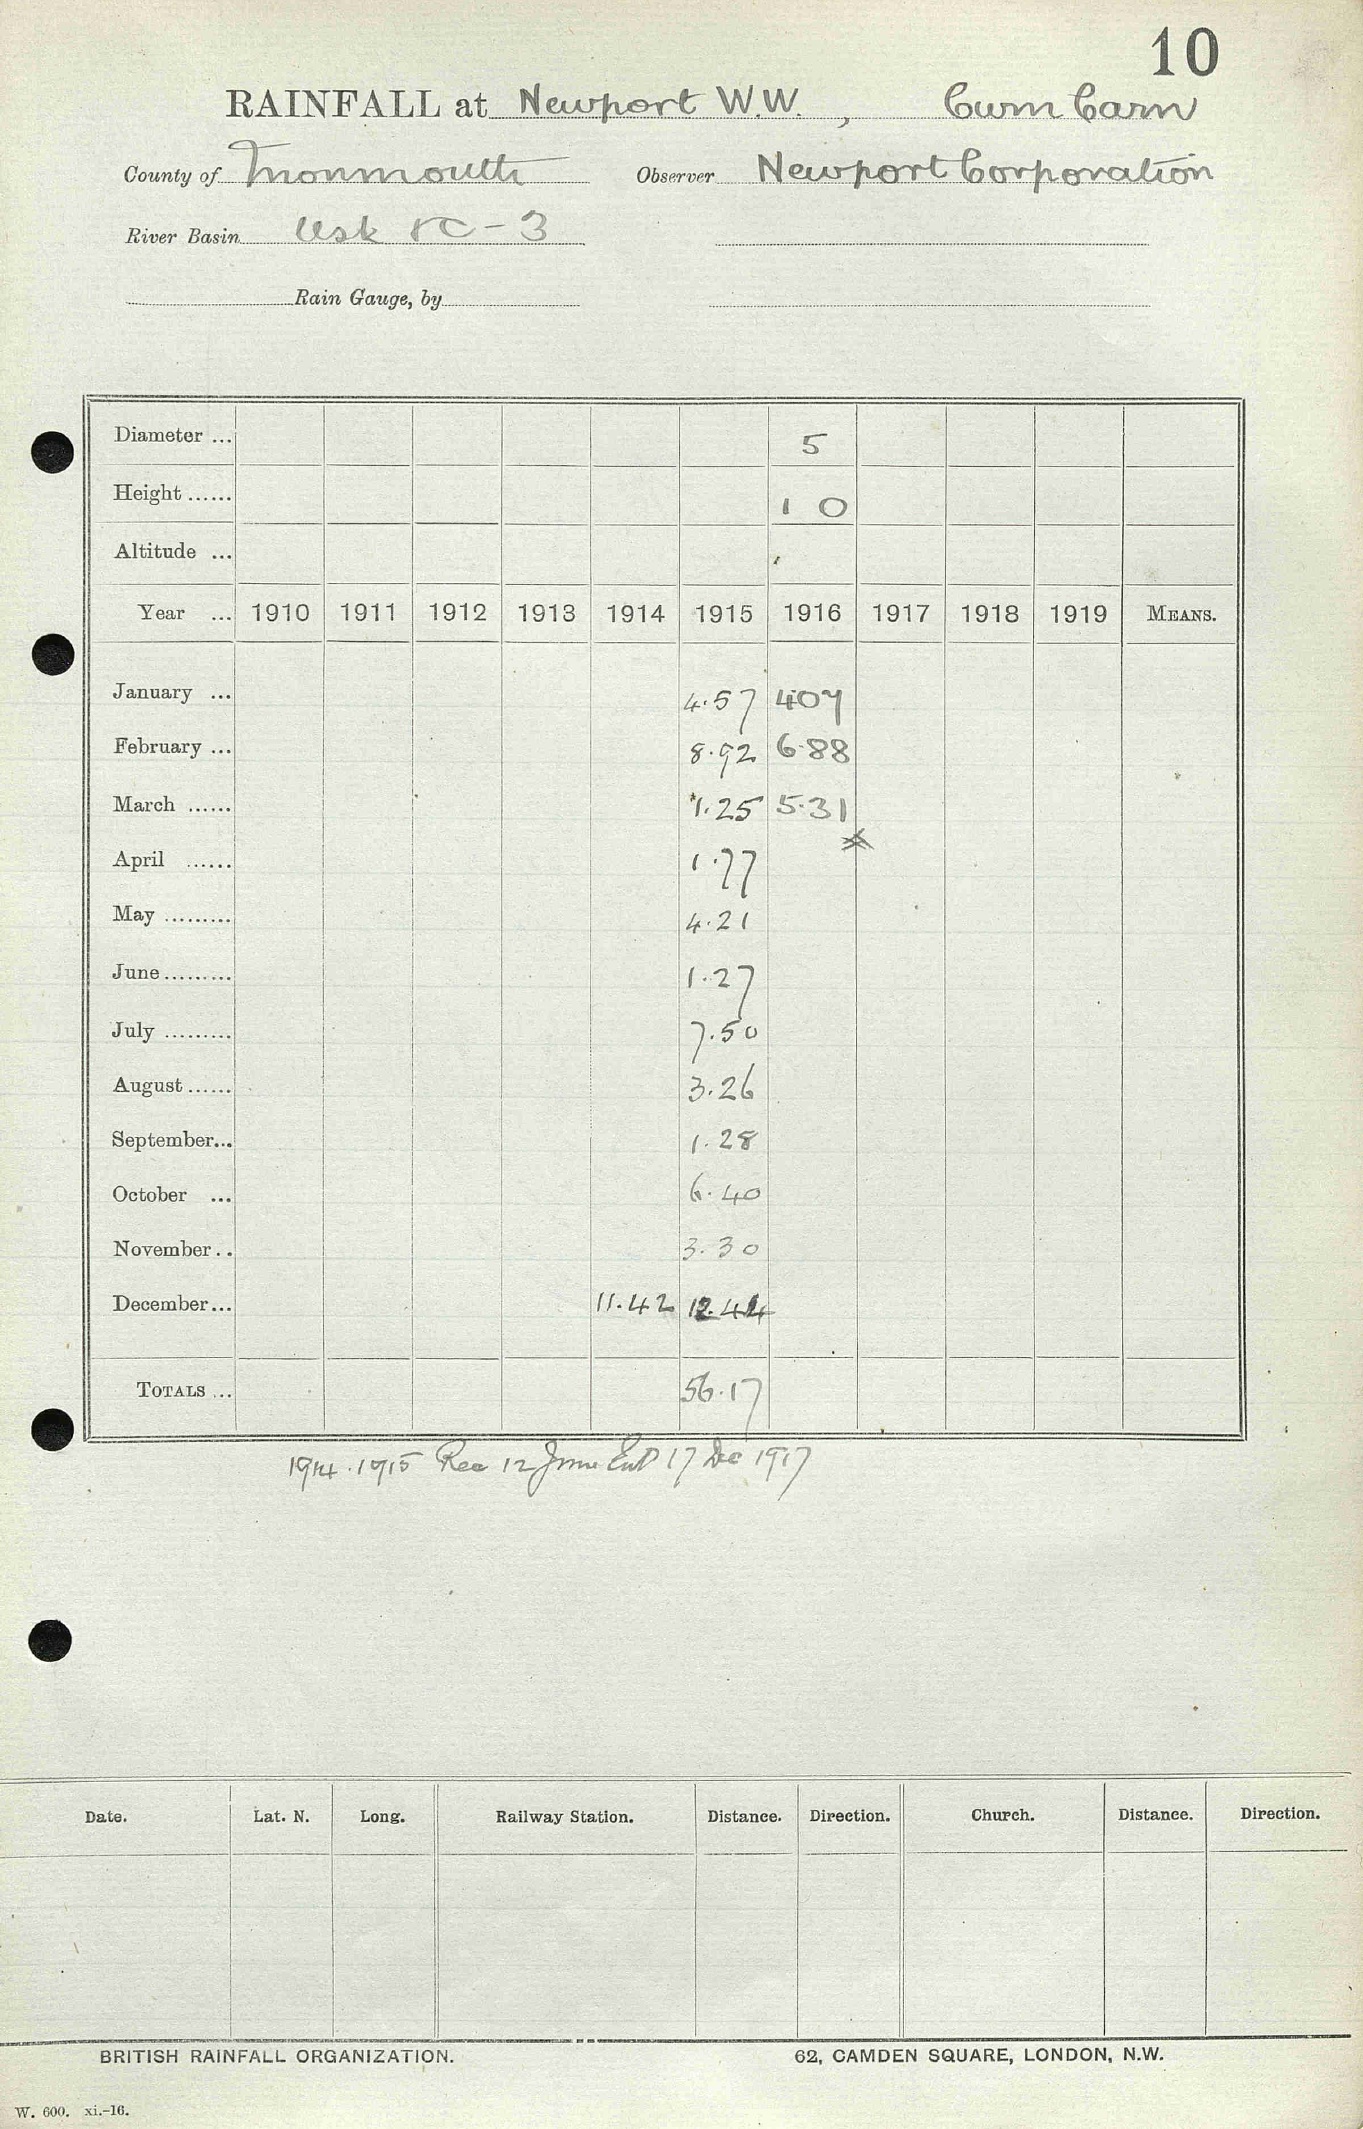 10
RAINFALL at Newport W.W., Cwm Carn
County of Monmouth Observer Newport Corporation
River Basin Usk
Rain Gauge, by
Diameter ... 5
Height ...... 1 0
Altitude ...
Year ... 1910 1911 1912 1913 1914 1915 1916 1917 1918 1919 MEANS.
January ... 4.57 4.07
February ... 8.92 6.88
March ...... 1.25 5.31
April ...... 1.77
May ......... 4.21
June ......... 1.27
July ......... 7.50
August ...... 3.26
September... 1.28
October ... 6.40
November .. 3.30
December... 11.42 12.44
TOTALS ... 56.17
1914.1915 Rec 12 June Entd 17 Dec 1917
Date. Lat. N. Long. Railway Station. Distance. Direction. Church. Distance. Direction.
BRITISH RAINFALL ORGANIZATION. 62, CAMDEN SQUARE, LONDON, N.W.
W. 600. xi.-16.